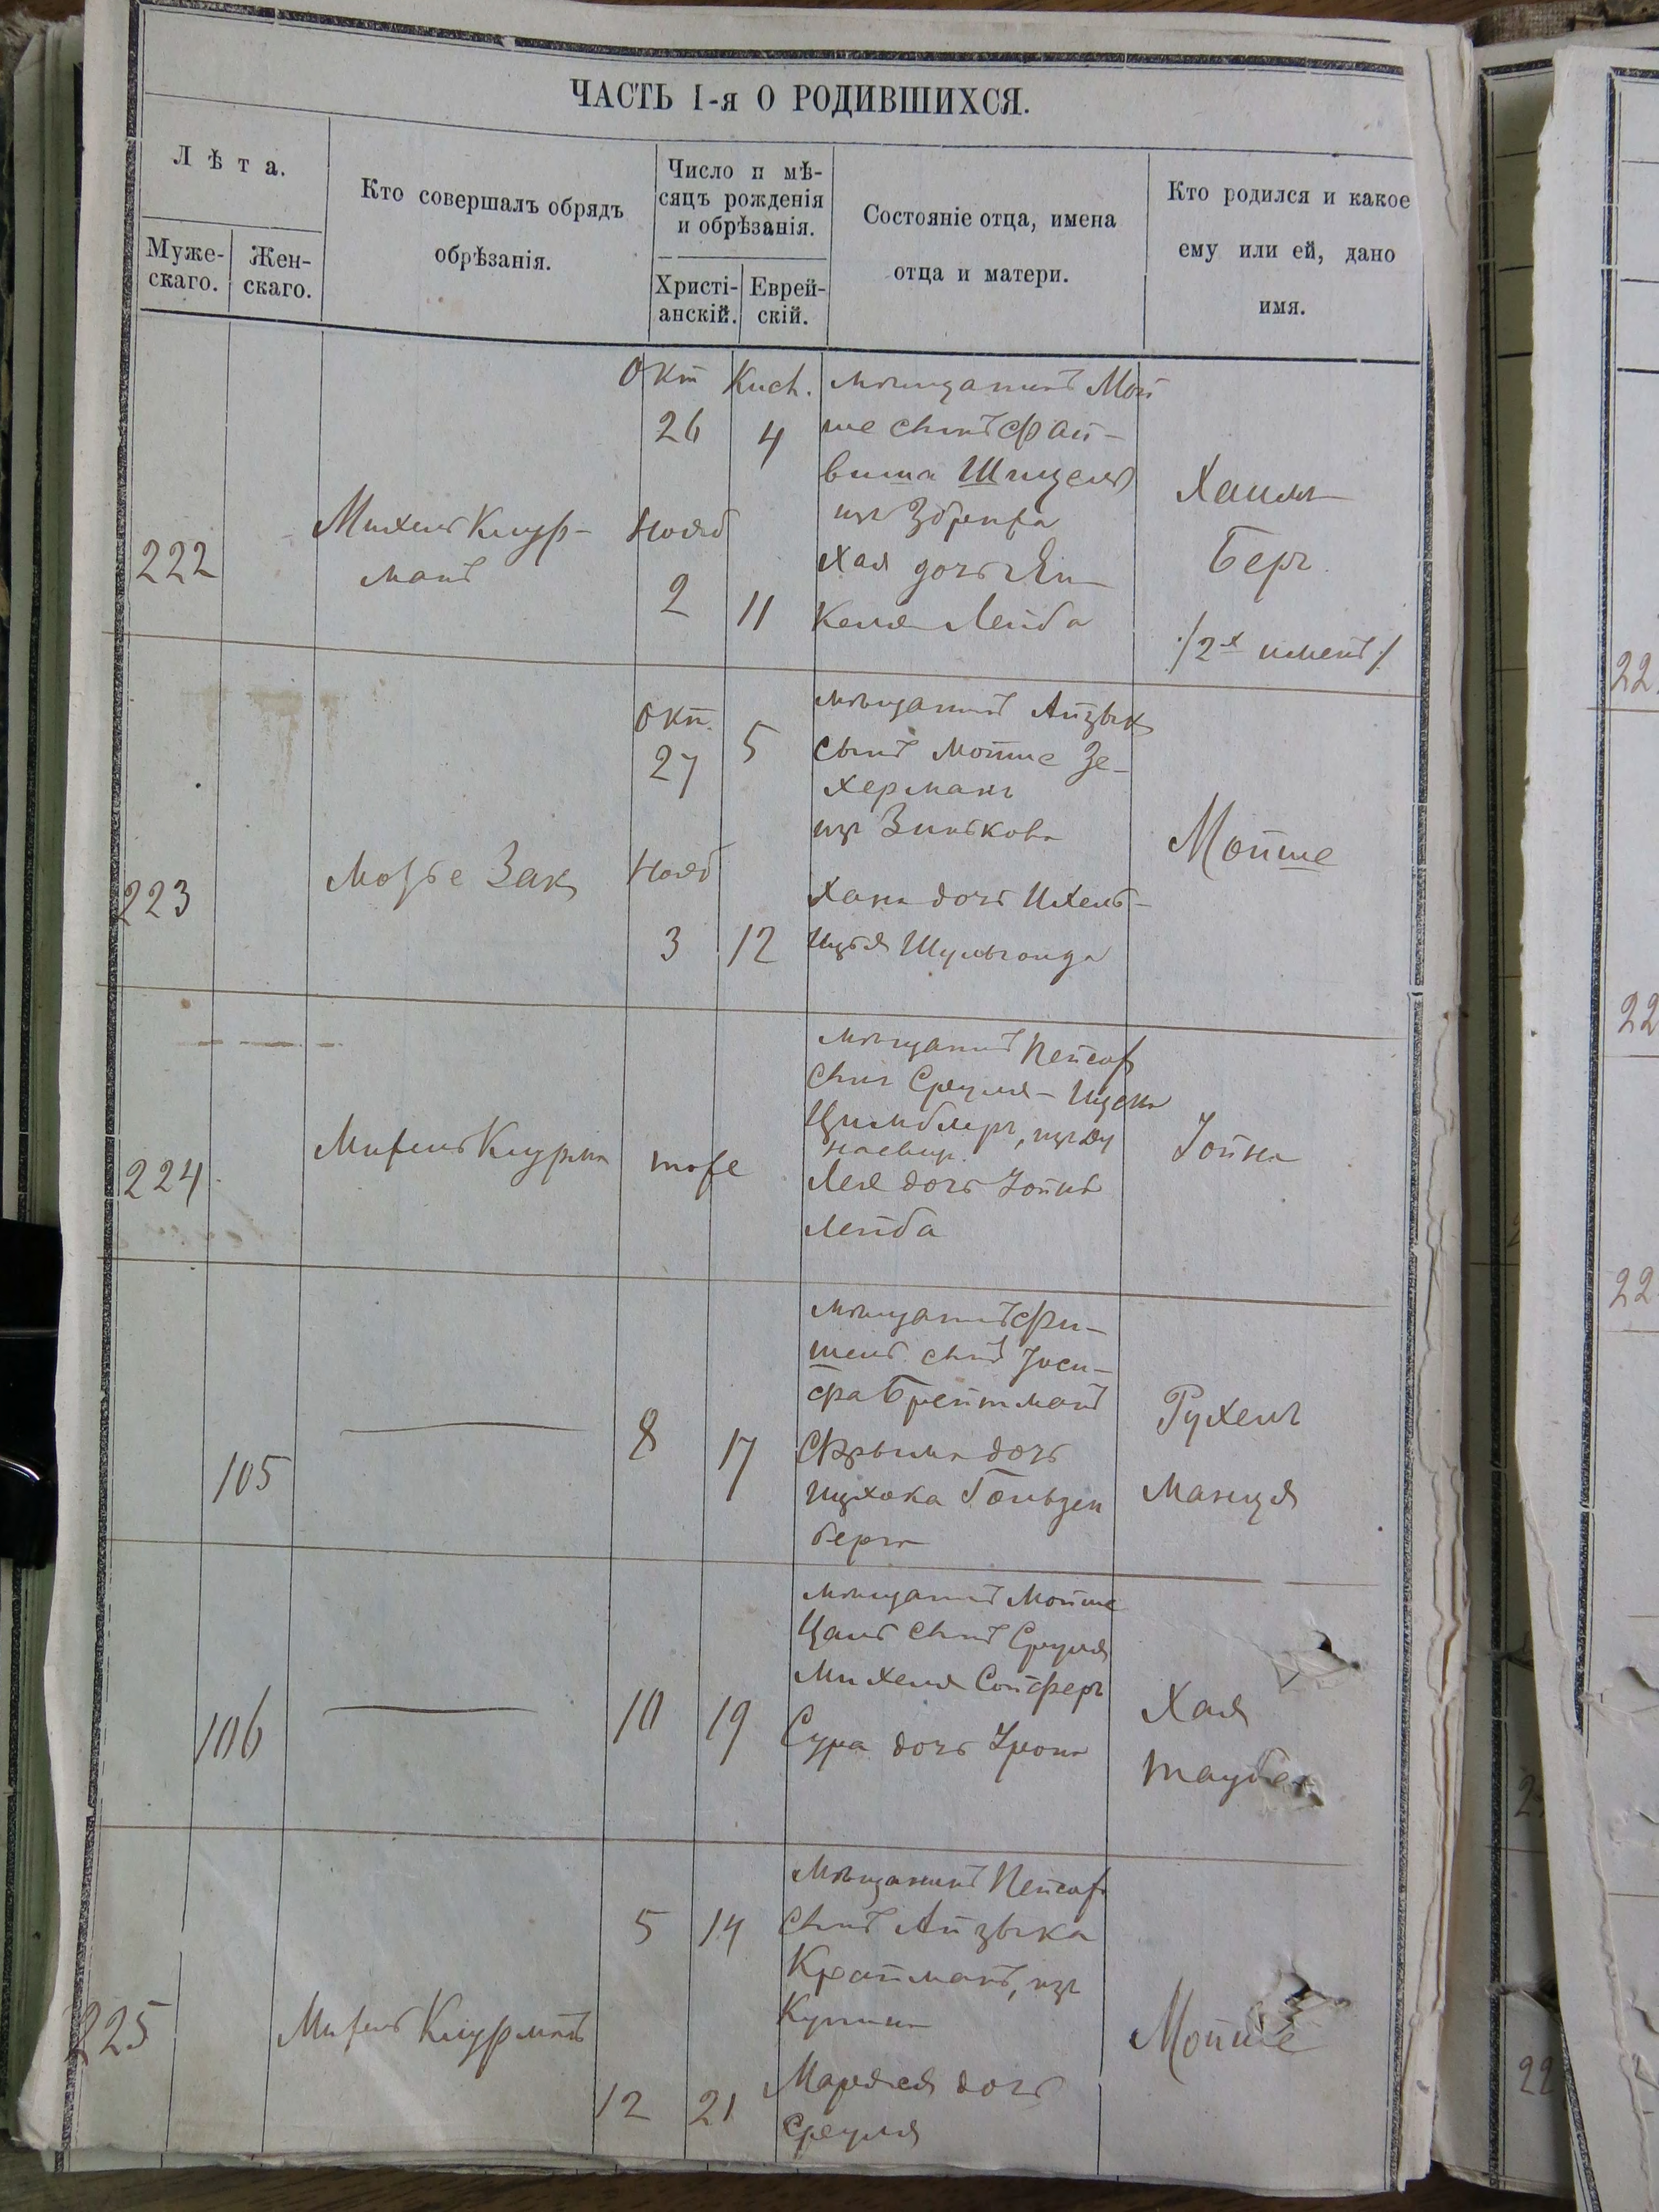 ЧАСТЬ I-я О РОДИВШИХСЯ.
Лѣта.
Муже-
скаго.
Жен-
скаго.
Кто совершалъ обрядъ
обрѣзанія.
Число п мѣ-
сяцъ рожденія
и обрѣзанія.
Христі-
анскій.
Еврей-
скій.
Состояніе отца, имена
отца и матери.
Кто родился и какое
ему или ей, дано
имя.
222
Михель Клур-
манъ
Окт
26
Нояб
2
4
11
мѣщанинъ Мой
ше сынъ Фай-
виша
изъ
Хая дочь Ян-
келя Лейба
Хаимъ
Беръ
/2х именъ/
223
Зак
Окт.
27
Нояб
3
5
12
мѣщанинъ Айзык
сынъ Мойше Зе-
херманъ
изъ Зинькова
Хана дочь Ихель-
Мойше
224
Михель Клурма
тоже
мѣщанинъ Пейсах
сынъ Сруля-
Цимблеръ, изъ Ду
наевец.
Лея дочь Іойны
Лейба
Іойна
105
8
17
мѣщанинъ Фи-
шель сынъ Іоси-
фа Брейтманъ
дочь
Ицхока Гольден
берга
Рухель
Манця
106
10
19
мѣщанинъ Мойше
сынъ Сруля
Михеля Сойферъ
Сура дочь
Хая
Тауба
225
Михель Клурманъ
5
12
14
21
мѣщанинъ Пейсах
сынъ Айзыка
Кройманъ, изъ
дочь
Сруля
Мойше
22
22
22
22